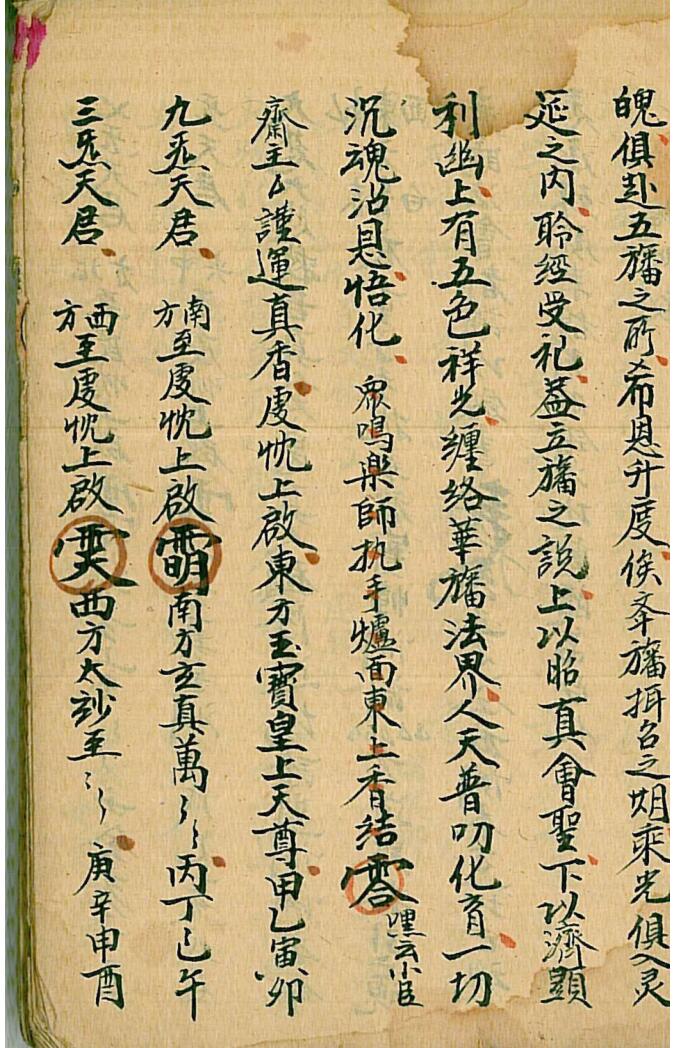 魄俱赴五旛之所希恩升度俟夲旛揖召之期乘光俱入灵
延之内聆經受祀葢立旛之説上以昭真會聖下以濟顯
利幽上有五色祥光纏络華旛法界人天普叨化育一切
沉魂沾恩悟化 眾鳴樂師执手爐面東上香结 嘿云小臣
齋主厶謹運真香虔忱上啟東方玉寶皇上天尊甲乙寅卯
九炁天君 南方至虔忱上啟 南方玄真萬〻丙丁巳午
三炁天君 西方至虔忱上啟 西方太妙至〻庚辛申酉